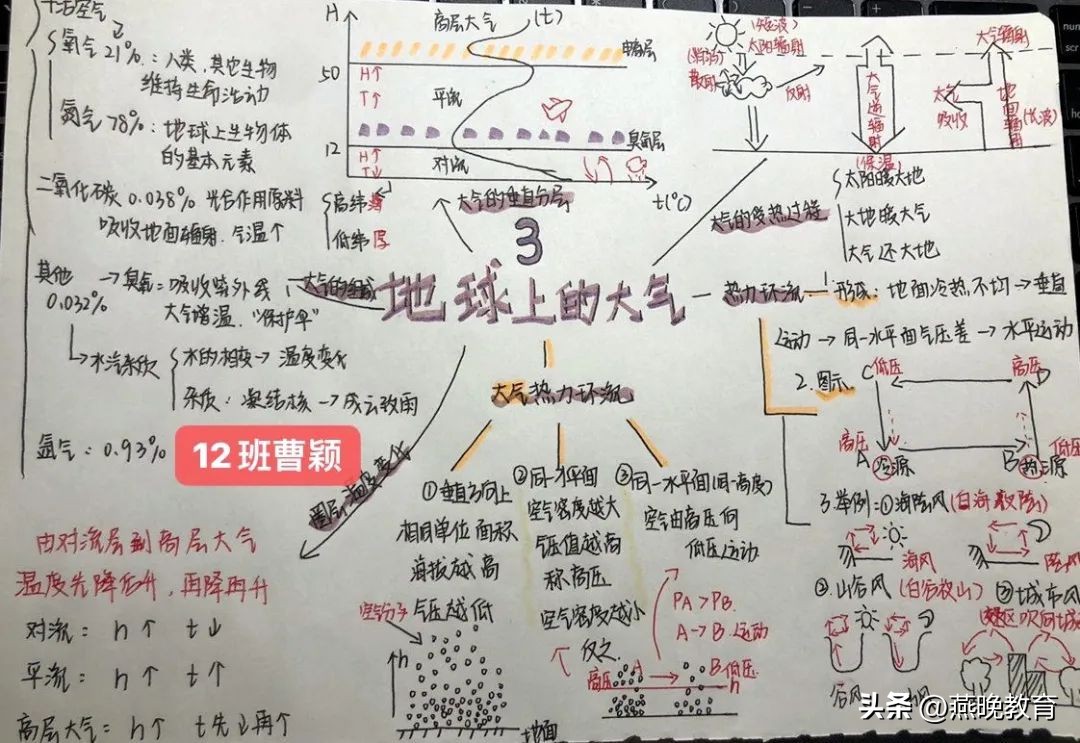 干洁空气
氧气 21%：人类,其它生物
维持生命活动
氮气 78%：地球上生物体
的基本元素
二氧化碳 0.038% 光合作用原料
吸收地面辐射.气温个
其他
0.032%
臭氧：吸收紫外线
大气增温."保护伞"
水汽杂质
水的相变→温度变化
杂质：凝结核→成云致雨
氩气：0.93%
12班曹颖
H
高层大气
(t)
电离层
50
H↑
T↑
平流
臭氧层
12
H↑
T↓
对流
t(℃)
大气的垂直分层
高纬薄
低纬厚
3
地球上的大气
大气的组成
(短波)
太阳辐射
(削弱)
散射
反射
大气逆辐射
(保温)
大气辐射
大气
吸收
地面辐射
(长波)
大气的受热过程
太阳暖大地
大地暖大气
大气还大地
热力环流
1.形成：地面冷热不均→垂直
运动→同一水平面气压差→水平运动
2.图示
C低压
高压D
高压
A
冷源
低压
B
热源
3.举例：①海陆风(白海夜陆)
海风
陆风
②山谷风(白谷夜山)
谷风
③城市风
(郊区吹向城
大气热力环流
①垂直方向上
相同单位面积
海拔越高
气压越低
空气分子
h
地面
②同一水平面
空气密度越大
气压值越高
称高压
空气密度越小
反之
③同一水平面(同一高度)
空气由高压向
低压运动
PA>PB.
A→B 运动
高压
A
B低压
h
圈层温度变化
由对流层到高层大气
温度先降后升,再降再升
对流：h↑ t↓
平流：h↑ t↑
高层大气：h↑ t先↓再个
头条@燕晚教育